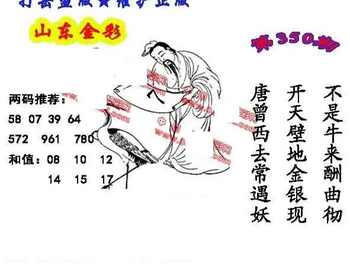 打击盗版  维护正版
山东金彩
第350期
两码推荐:
58 07 39 64
572 961 780
和值: 08 10 12
14 15 17
不是牛来酬曲彻
开天壁地金银现
唐曾西去常遇妖